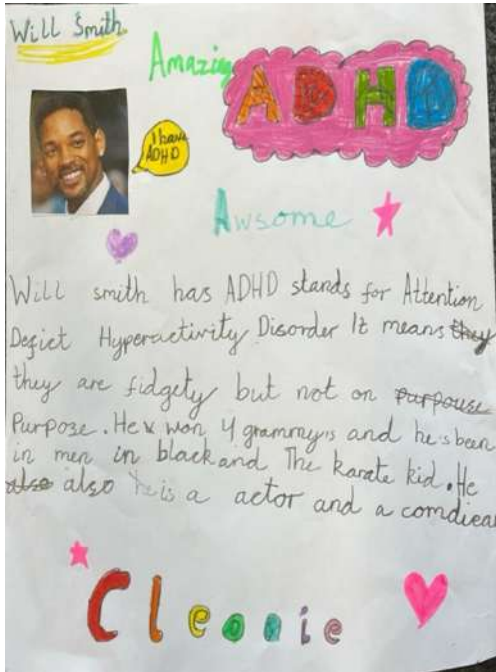 Will Smith
Amazing ADHD
I have
ADHD
Awsome
Will smith has ADHD stands for Attention
Deficit Hyperactivity Disorder It means they
they are fidgety but not on purpouse
Purpose. He won 4 grammy's and he's been
in men in black and The karate kid. He
also also he is a actor and a comdiean
Cleonie